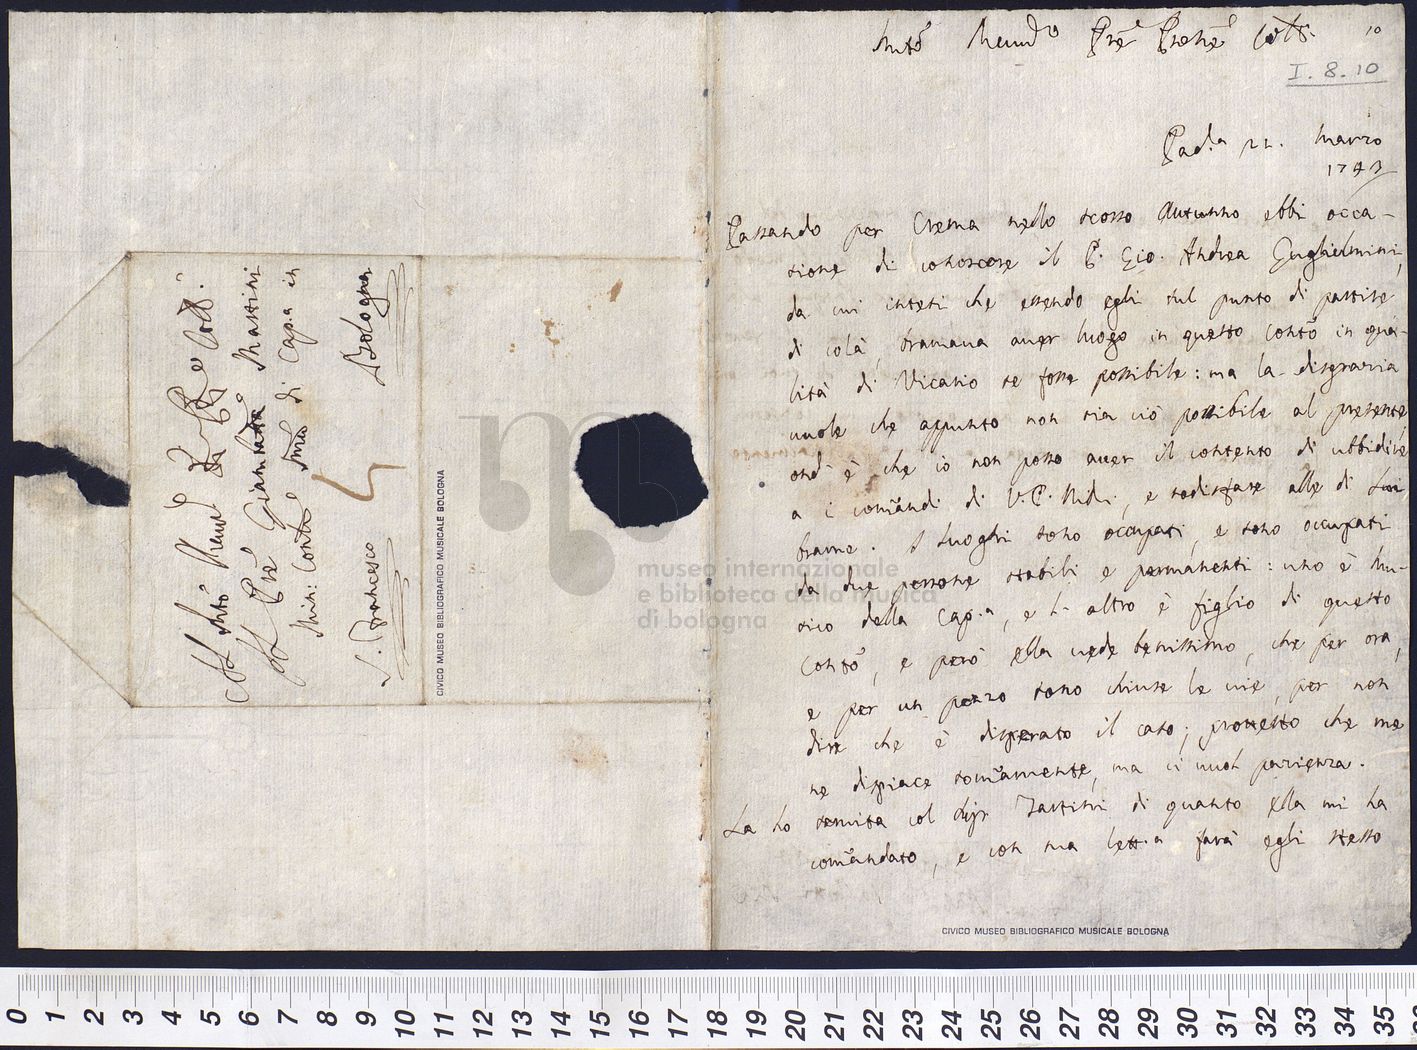 Molto Reverdo Pre Prone Colmo.
10
I. 8. 10
Pad.a 22. Marzo
1743
Passando per Crema nello scorso Autunno ebbi occa-
sione di conoscere il P. Gio. Andrea Guglielmini,
da cui intesi che essendo egli sul punto di partire
di colà, bramava aver luogo in questo Conto in qua-
lità di Vicario se fosse possibile: ma la disgrazia
vuole che appunto non sia ciò possibile al presente,
ond' è che io non posso aver il contento di ubbidire
a i comãndi di V. P. M.R., e sodisfare alle di Lui
brame. I Luoghi sono occupati, e sono occupati
da due persone stabili e permanenti: uno è Mu-
sico della Cap.a, e l' altro è figlio di questo
Conto, e però ella vede benissimo, che per ora,
e per un pezzo sono chiuse le vie, per non
dire che è disperato il caso; protesto che me
ne dispiace som̃amente, ma ci vuol pazienza.
La ho servita col Sigr Tartini di quanto ella mi ha
com̃andato, e con sua lett.a farà egli stesso
Al Molto Revdo Pre Prone Colmo.
Al Pre Giambatta Martini
Min: Conle Mro di Cap.a in
S. Francesco
Bologna
CIVICO MUSEO BIBLIOGRAFICO MUSICALE BOLOGNA
museo internazionale
e biblioteca della musica
di bologna
CIVICO MUSEO BIBLIOGRAFICO MUSICALE BOLOGNA
0 1 2 3 4 5 6 7 8 9 10 11 12 13 14 15 16 17 18 19 20 21 22 23 24 25 26 27 28 29 30 31 32 33 34 35